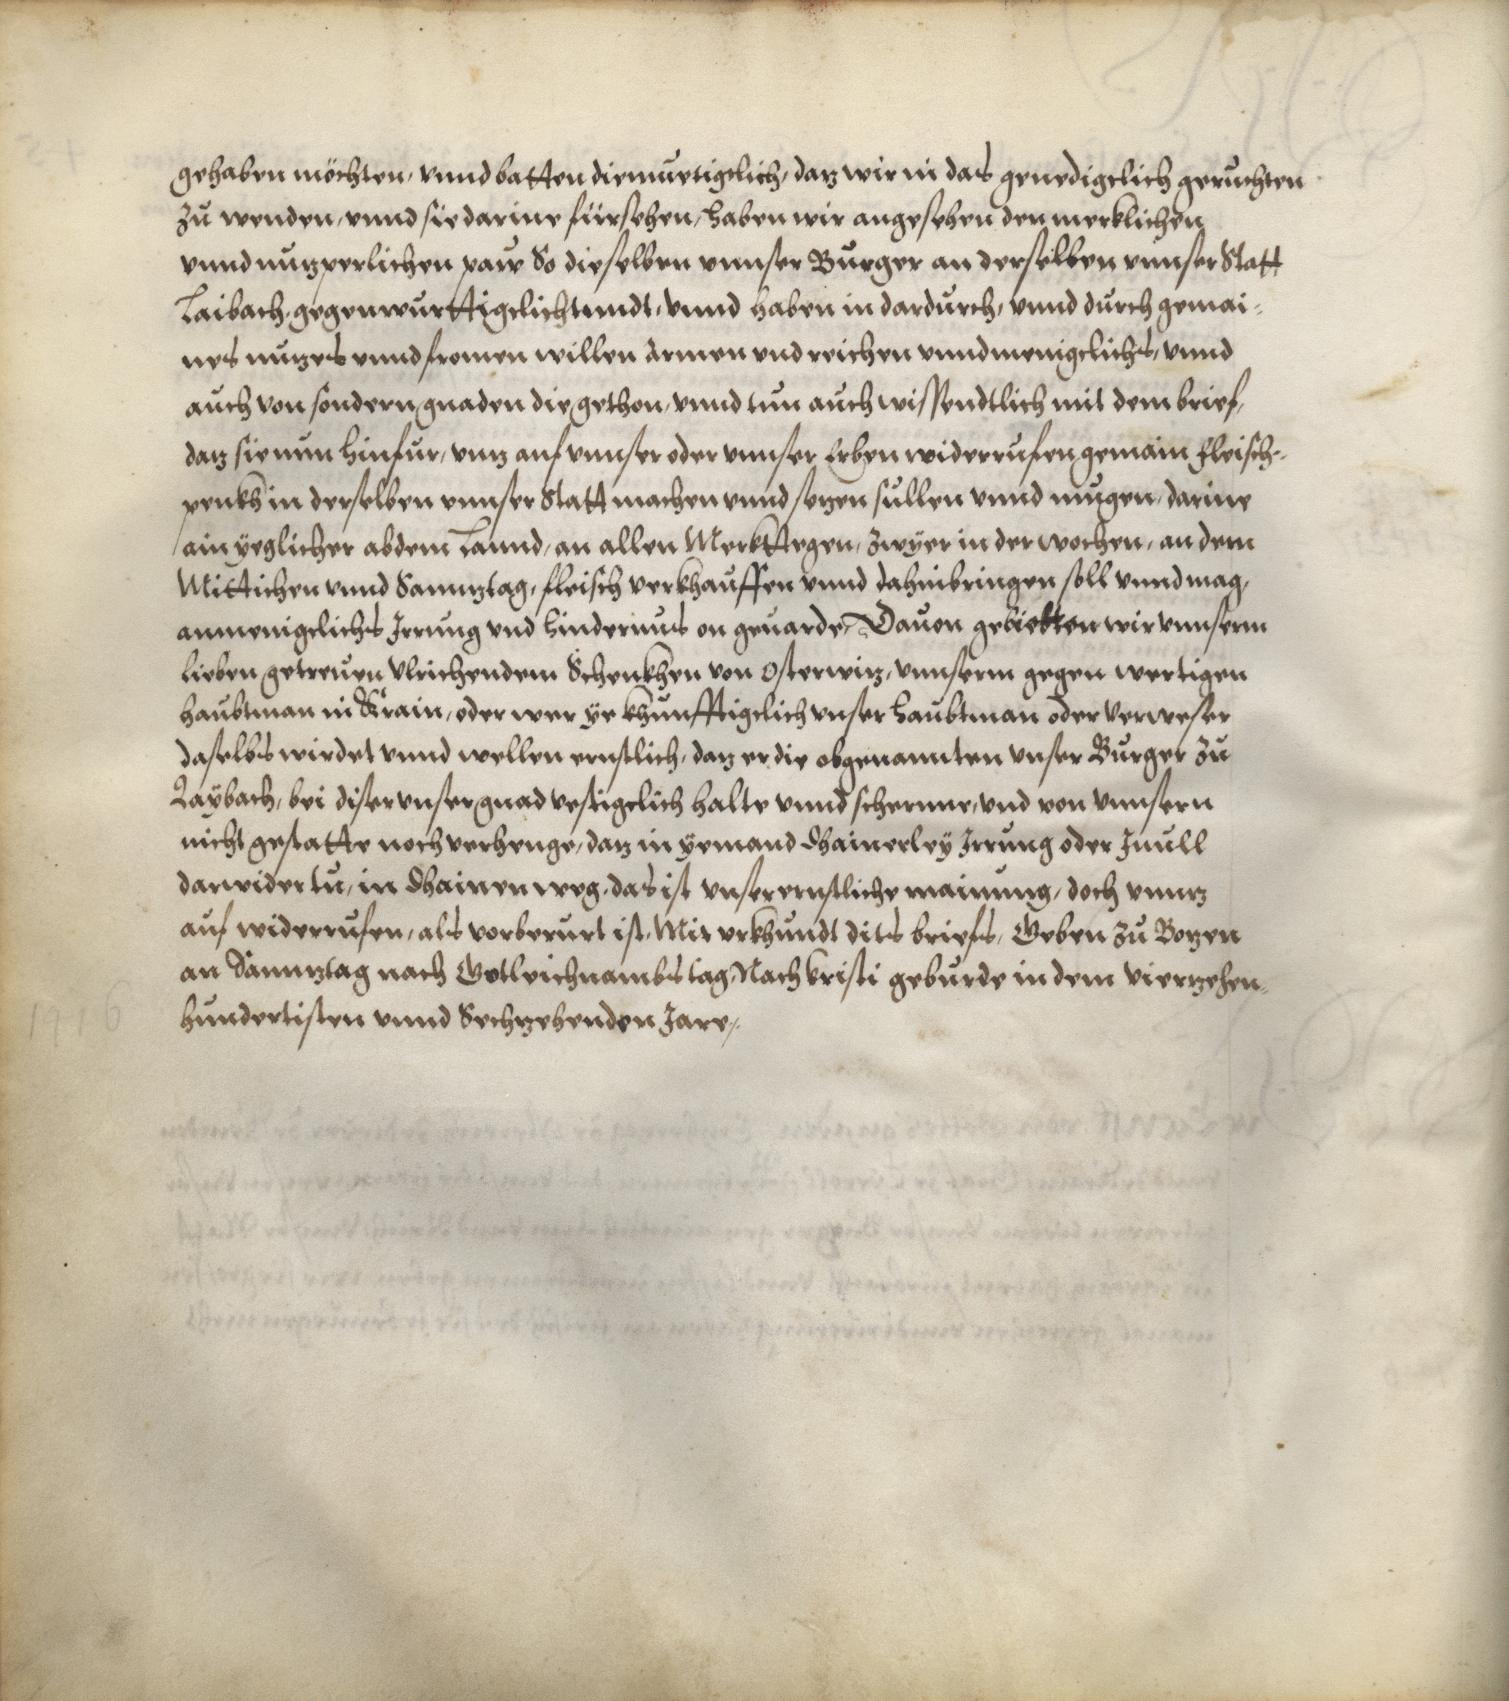 gehaben möchten, vnnd batten diemuetigclich, daz wir in das genedigclich geruchten
zu wenden, vnnd sie darine fürsehen, haben wir angesehen den merklichen
vnnd nuzperlichen paw So dieselben vnnser Burger an derselben vnnser Statt
Laibach, gegenwurttigclich tundt, vnnd haben in dardurch, vnnd durch gemai-
nes nuzes vnnd fromen willen Armen vnd reichen vnnd menigclichs, vnnd
auch von sondern gnaden die gethon, vnnd tun auch wissendtlich mit dem brief,
daz sie nun hinfur, vnz auf vnnser oder vnnser Erben widerrufen gemain fleisch-
penkh in derselben vnnser Statt machen vnnd sezen sullen vnnd mugen, darine
ain yeglicher ab dem Lannd, an allen Merkttegen, zwyer in der wochen, an dem
Mittichen vnnd Sannztag, fleisch verkhauffen vnnd dahin bringen soll vnnd mag,
an menigclichs Irrung vnd hindernus on geuarde, Dauon gebietten wir vnnserm
lieben getreuen Vlrichen dem Schenkhen von Osterwiz, vnnserm gegen wertigen
haubtman in Krain, oder wer ye khunfftigclich vnser haubtman oder verweser
daselbs wirdet vnnd wellen ernstlich, daz er die obgenannten vnser Burger zu
Laybach, bei diser vnser gnad vestigclich halte vnnd scherme, vnd von vnnsern
nicht gestatte noch verhenge, daz in yemand dhainerley Irrung oder Inuell
darwider tu, in dhainen weg, das ist vnser ernstliche mainung, doch vnnz
auf widerrufen, als vorberurt ist, Mit vrkhundt dits briefs, Geben zu Bozen
an Sannztag nach Gotleichnambs tag, Nach kristi geburde in dem vierzehen-
hundertisten vnnd Sechzehenden Jare.